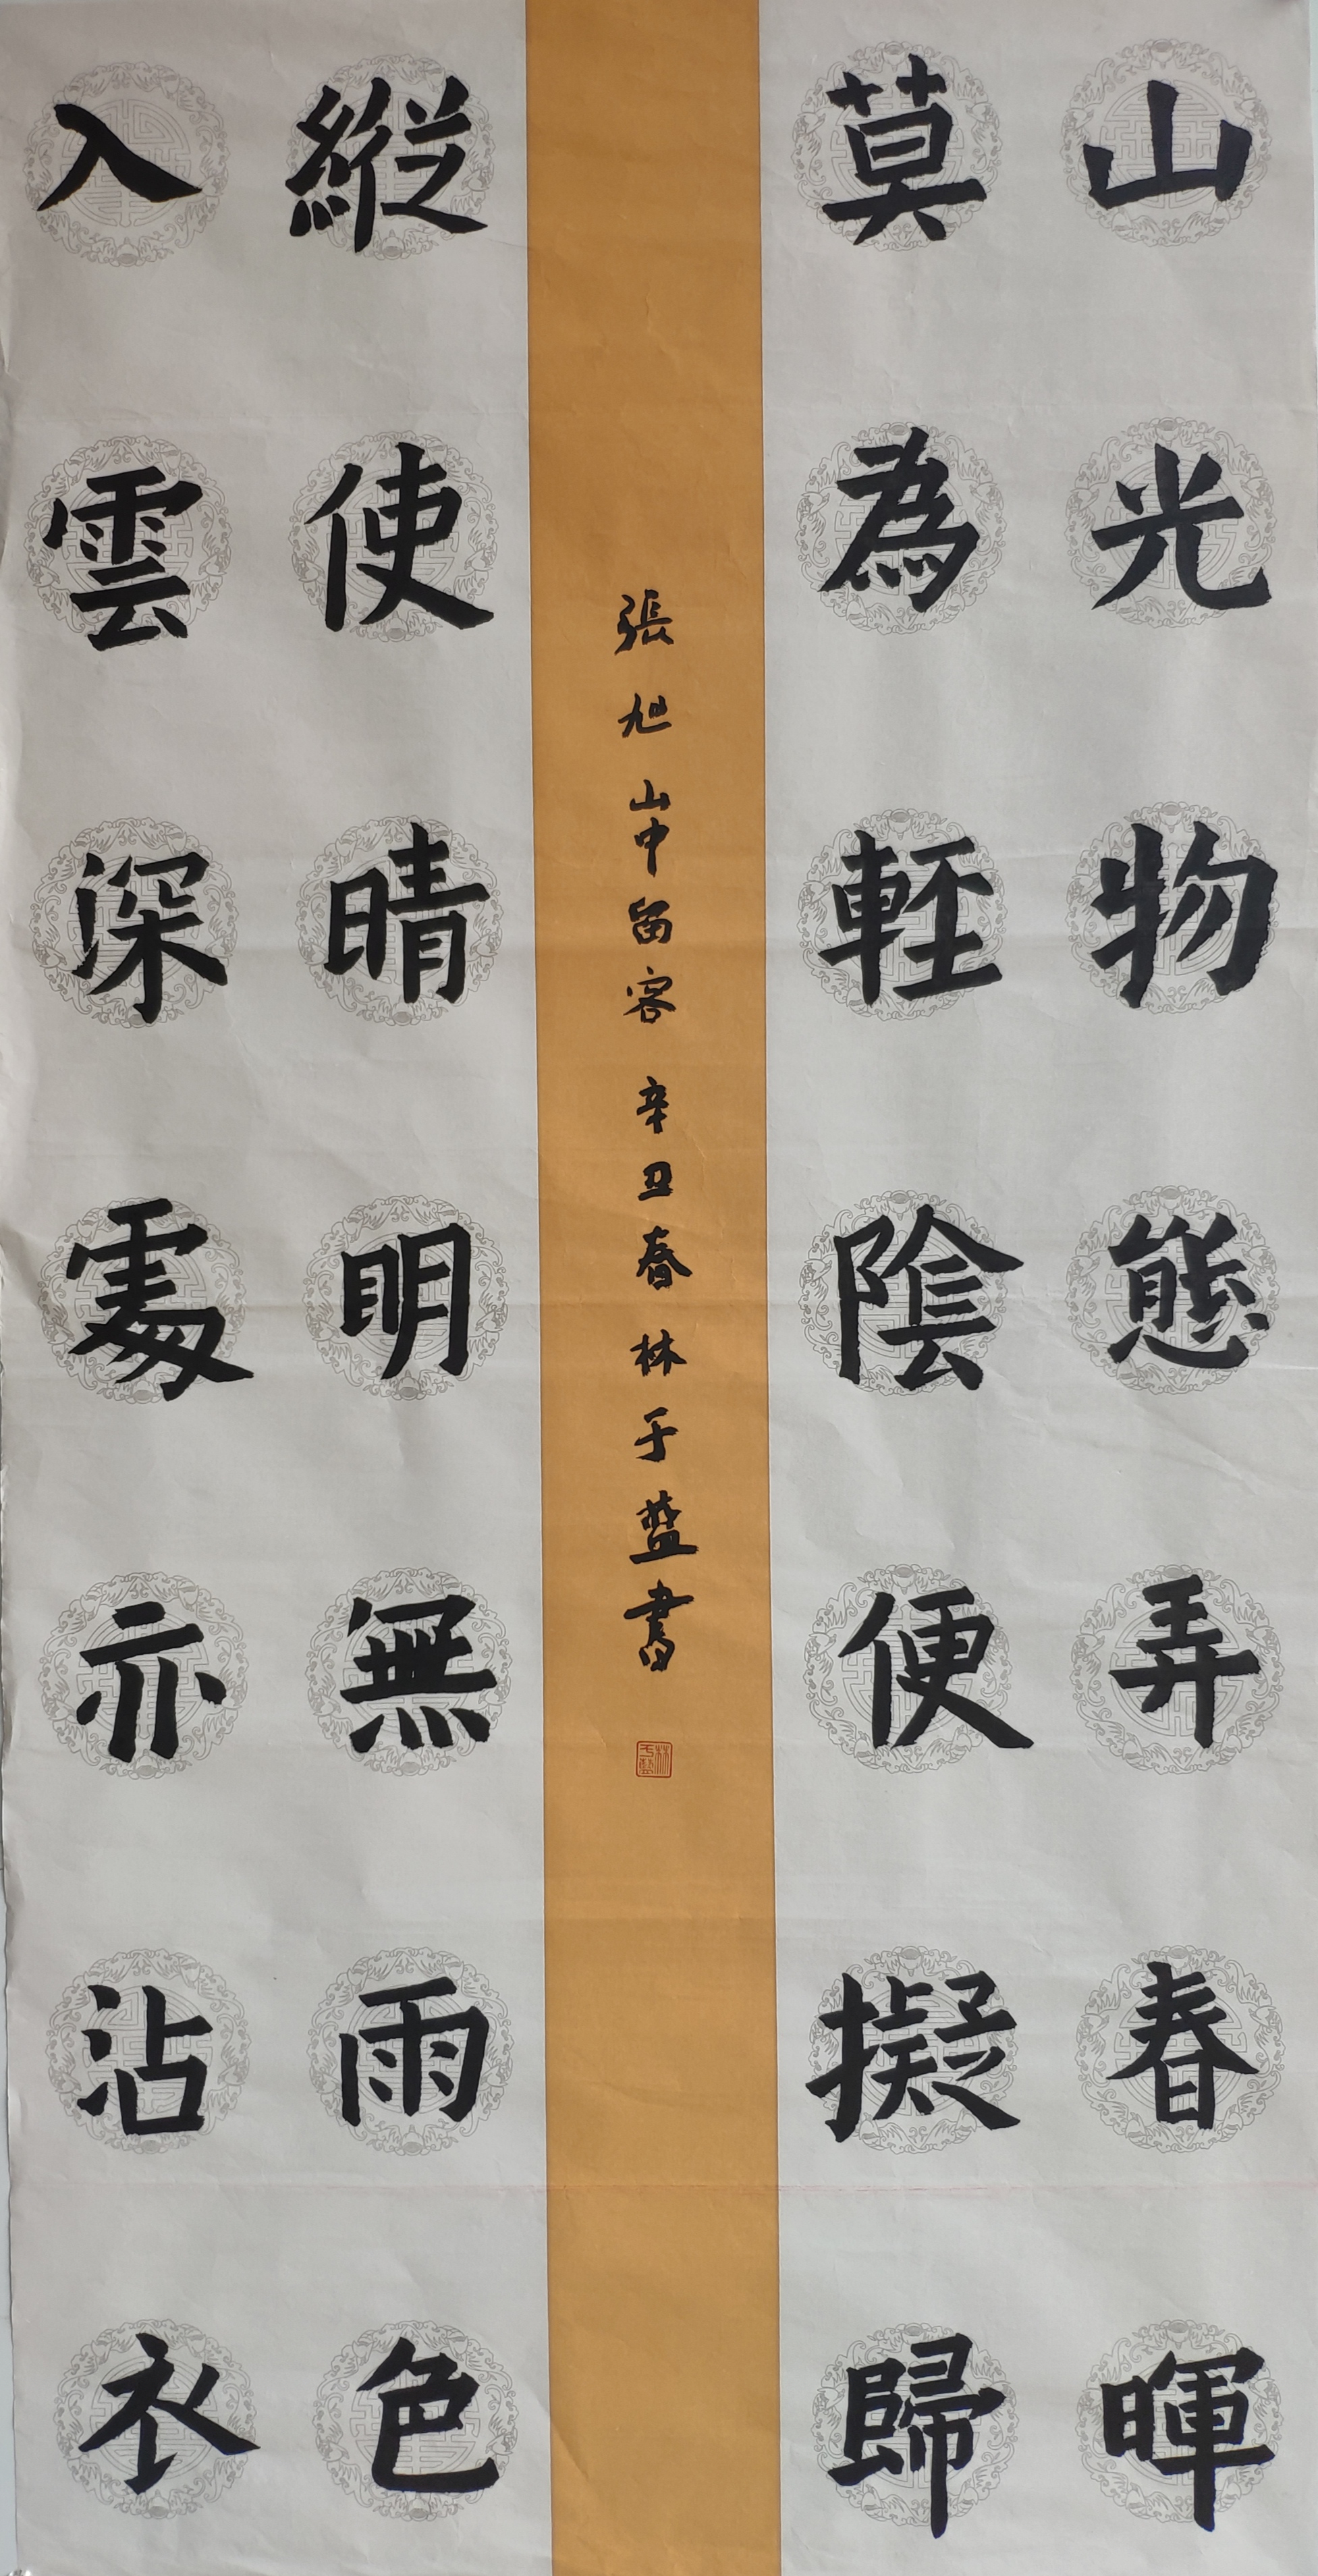 山光物態弄春暉
莫為輊陰便擬歸
張旭山中留客辛丑春林于藍書
縱使晴明無雨色
入雲深處亦沾衣